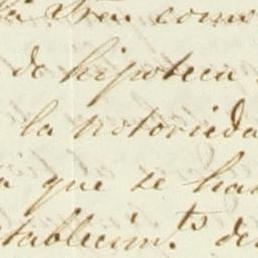 como
de hipoteca
la notorieda
que se ha
tablecim.ts de